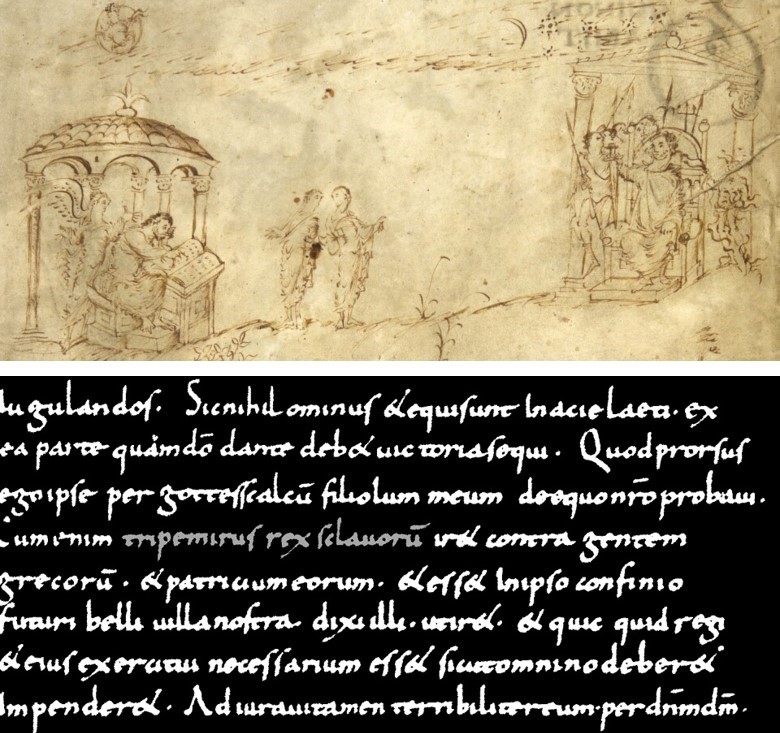 Iugulandos. Sic nihilominus & equi sunt In acie laeti. ex
ea parte quam dō dante deb& uictoria sequi. Quod prorsus
ego ipse per gottesscalcū filiolum meum de equo nr̄o probaui.
Cum enim tripemirus rex sclauorū ir& contra gentem
grecorū. & patricium eorum. & ess& In ipso confinio
futuri belli uilla nostra dixi illi. ut ir&. & quic quid regi
& eius exercitui necessarium ess& sicut omnino deber&
Impender&. Adiuraui tamen terribiliter eum per dn̄m dm̄.